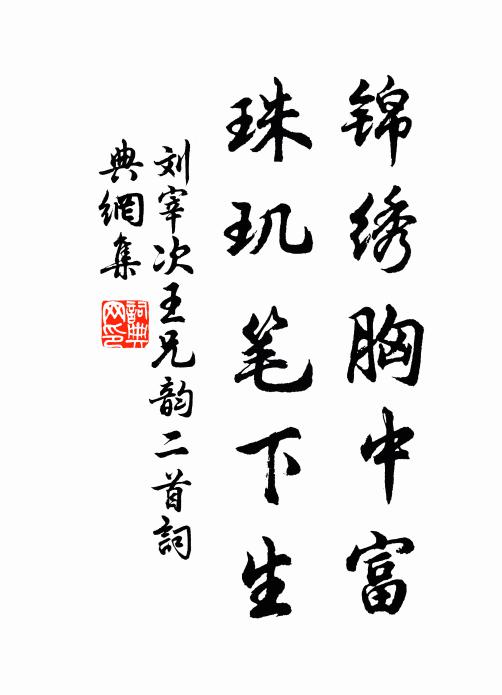 锦绣胸中富
珠玑笔下生
刘宰次王兄韵二首詞
典網集
詞典
网印